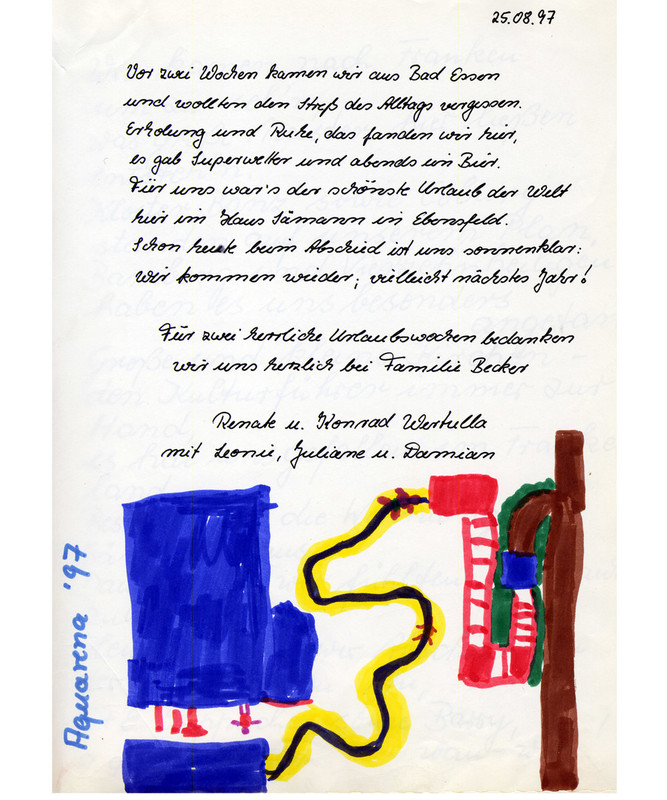 25.08.97
Vor zwei Wochen kamen wir aus Bad Essen
und wollten den Streß des Alltags vergessen.
Erholung und Ruhe, das fanden wir hier,
es gab Superwetter und abends ein Bier.
Für uns war's der schönste Urlaub der Welt
hier im Haus Sämann in Ebensfeld.
Schon heute beim Abschied ist uns sonnenklar:
wir kommen wieder; vielleicht nächstes Jahr!
Für zwei herrliche Urlaubswochen bedanken
wir uns herzlich bei Familie Becker
Renate u. Konrad Wertulla
mit Leonie, Juliane u. Damian
Aquarena '97